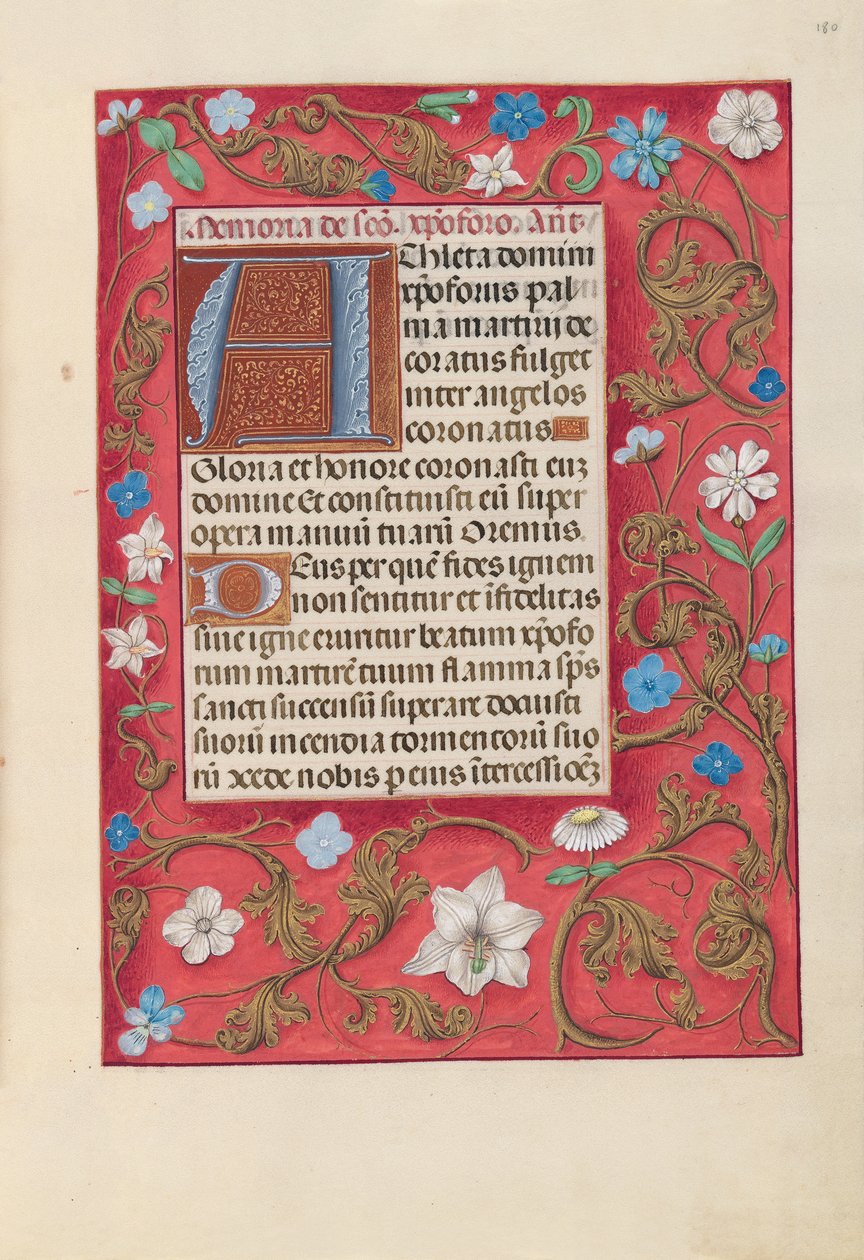 180
Memoria de scō. xp̄oforo. Ant̄
AThleta domini
xp̄oforus pal
ma martirij de
coratus fulget
inter angelos
coronatus
Gloria et honore coronasti euʒ
domine Et constituisti eū super
opera manuū tuarū Oremus.
Deus per quē fides ignem
non sentitur et īfidelitas
sine igne eruntur beatum xp̄ofo
rum martirē tuum flamma sp̄s
sancti succensū superare docuisti
suorū incendia tormentorū suo
rū xcede nobis p eius ītercessiōēʒ